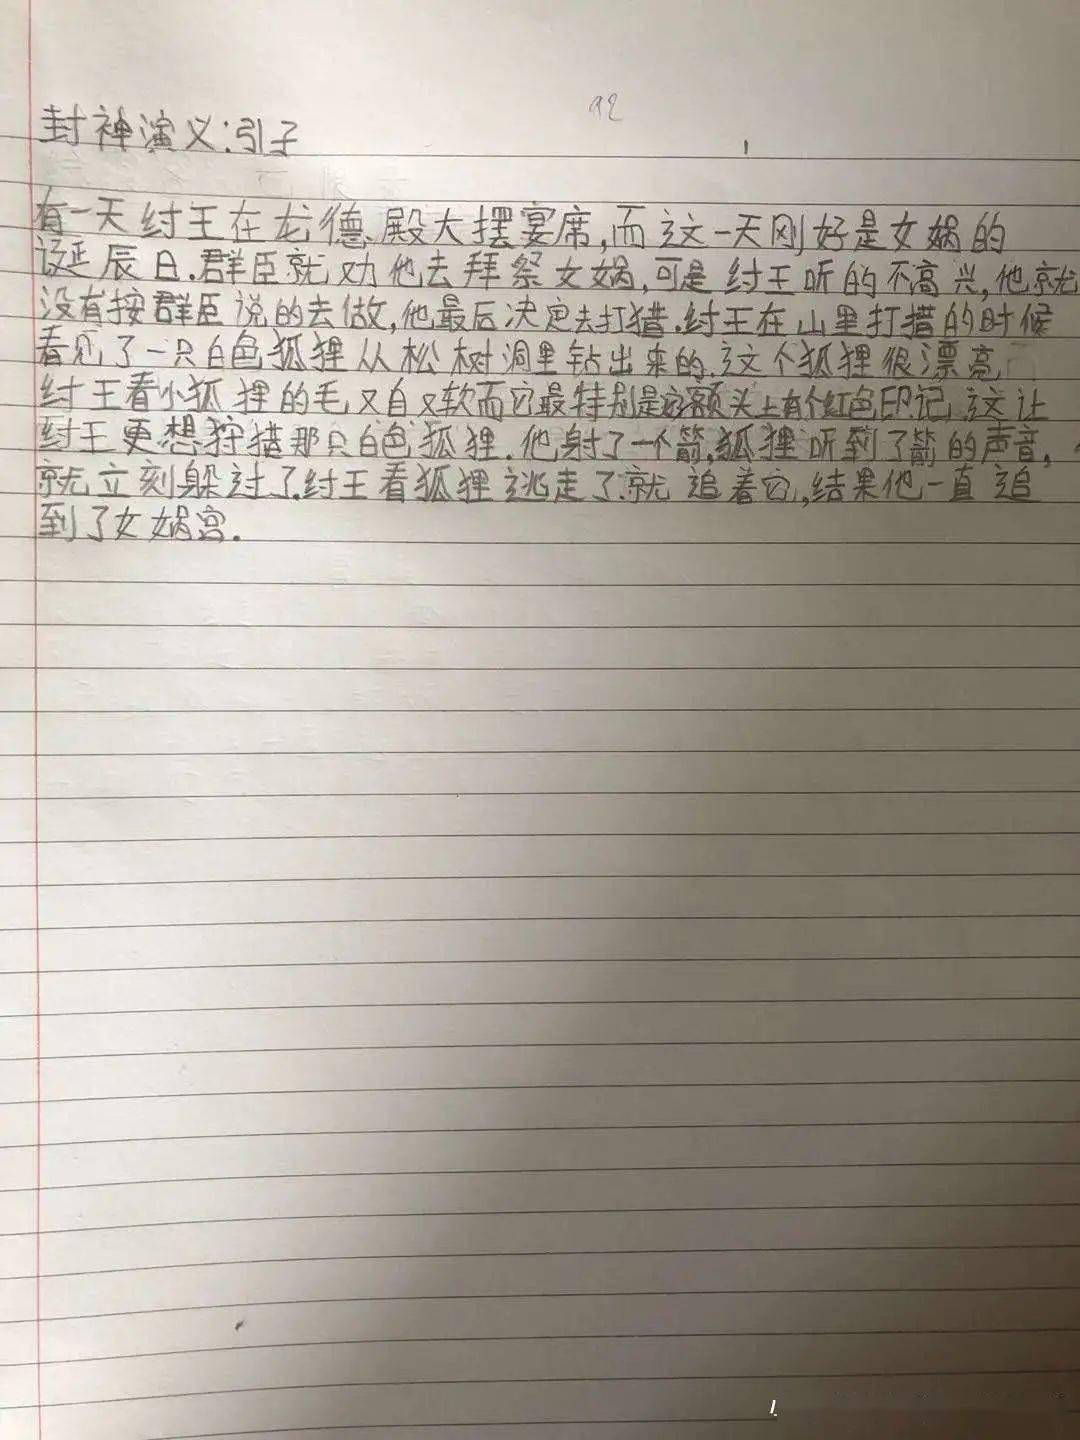 92
封神演义:引子
有一天纣王在龙德殿大摆宴席,而这一天刚好是女娲的
诞辰日.群臣就劝他去拜祭女娲,可是纣王听的不高兴,他就
没有按群臣说的去做,他最后决定去打猎.纣王在山里打猎的时候
看见了一只白色狐狸从松树洞里钻出来的.这个狐狸很漂亮
纣王看小狐狸的毛又白又软而它最特别是它额头上有个红色印记,这让
纣王更想狩猎那只白色狐狸.他射了一个箭,狐狸听到了箭的声音,
就立刻躲过了.纣王看狐狸逃走了就追着它,结果他一直追
到了女娲宫.